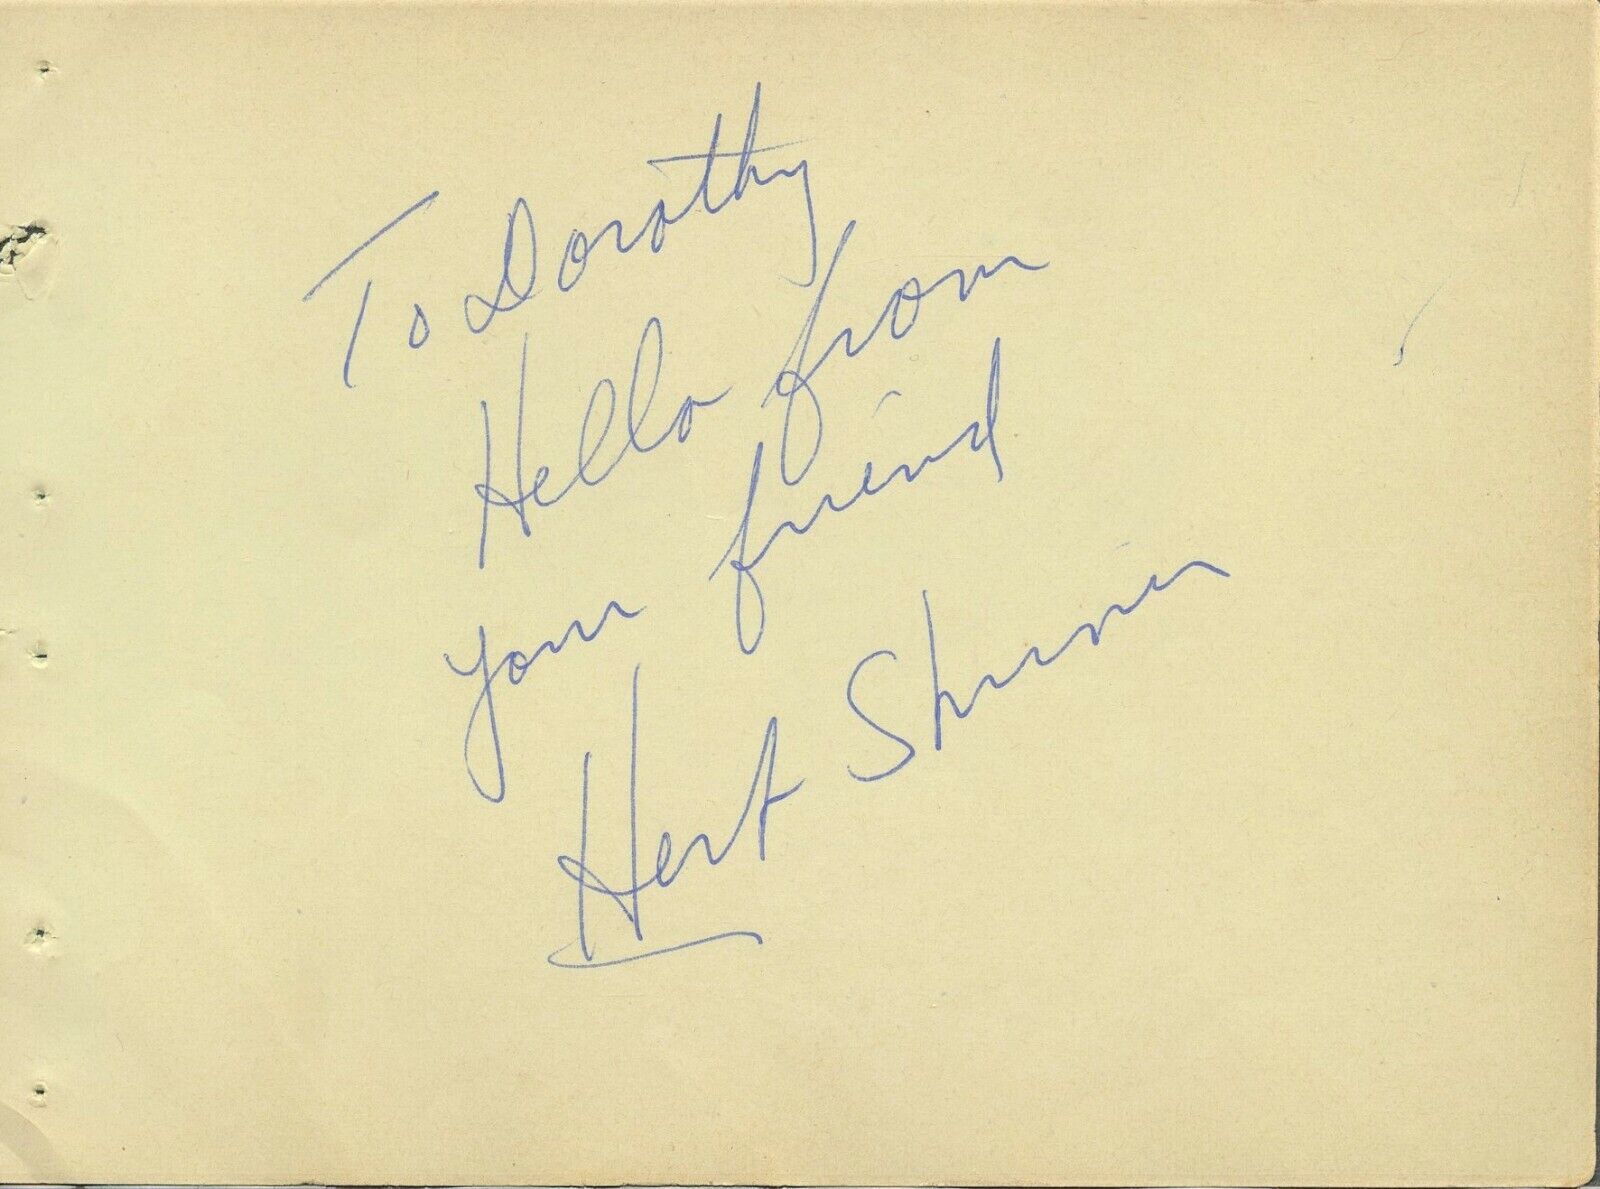 To Dorothy
Hello from
your friend
Herb Shriner